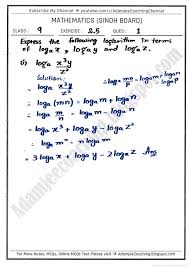 Subscribe My Channel ➔ youtube.com/c/AdamjeeCoachingChannel
MATHEMATICS (SINDH BOARD)
CLASS: 9 EXERCISE: 2.5 QUES: 1
Express the following logarithm in terms
of logₐx, logₐy and logₐz.
(i) logₐ x³y/z²
Solution:
= logₐ x³y/z²
∴ logₐ(mn) = logₐm + logₐn
∴ logₐ m/n = logₐm - logₐn
= logₐx³ + logₐy - logₐz²
∴ logₐmⁿ = n logₐm
= 3 logₐx + logₐy - 2 logₐz Ans
For More Notes, MCQs, Online MCQs Test, Please visit ➔ AdamjeeCoaching.Blogspot.com